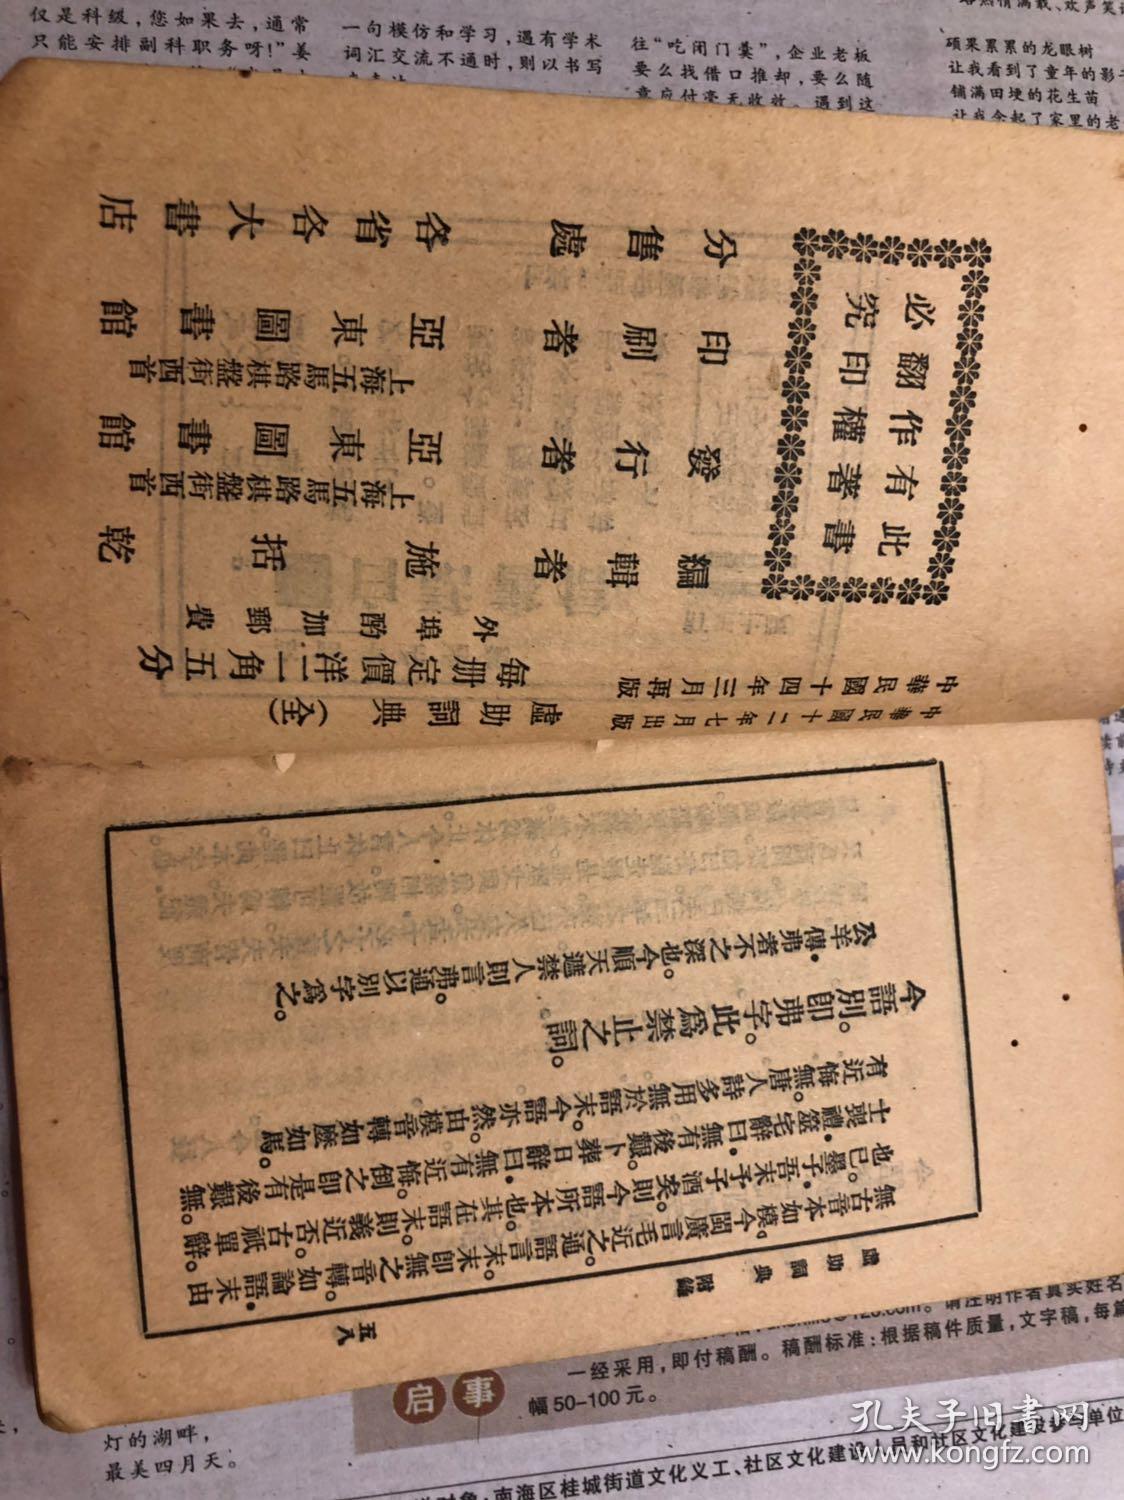 仅是科级，您如果去，通常
只能安排副科职务呀！”姜
一句模仿和学习，遇有学术
词汇交流不通时，则以书写
往“吃闭门羹”，企业老板
要么找借口推却，要么随
意应付毫无收效。遇到这
硕果累累的龙眼树
让我看到了童年的影
铺满田埂的花生苗
让我念起了家里的老
虛助詞典 附編 五八
無古音本如模。今閩廣言毛近之通語言末。末即無之音轉。如論語末由
也已。墨子吾末予子酒矣。則今語所本也。其在語末則義近否。古祇單辭。
士喪禮筮宅辭曰無有後艱。卜葬日辭曰無有近悔。倒之即是有後艱無
有近悔無。唐人詩多用無於語末。今語亦然。由模音轉如麽如馬。
今語別。即弗字。此爲禁止之詞。
公羊傳弗者不之深也。今順天遮禁人則言弗。通以別字爲之。
中華民國十二年七月出版
中華民國十四年三月再版
虛助詞典（全）
每册定價洋一角五分
外埠酌加郵費
編輯者 施括乾
發行者 亞東圖書館
上海五馬路棋盤街西首
印刷者 亞東圖書館
上海五馬路棋盤街西首
分售處 各省各大書店
此書有著作權翻印必究
请注明作者真实姓名
一经采用，即付稿酬。稿酬标准：根据稿件质量，文字稿，每篇
幅50-100元。
启事
灯的湖畔，
最美四月天。
南海区桂城街道文化义工、社区文化建设人员和社区文化建设参与单位
孔夫子旧书网
www.kongfz.com